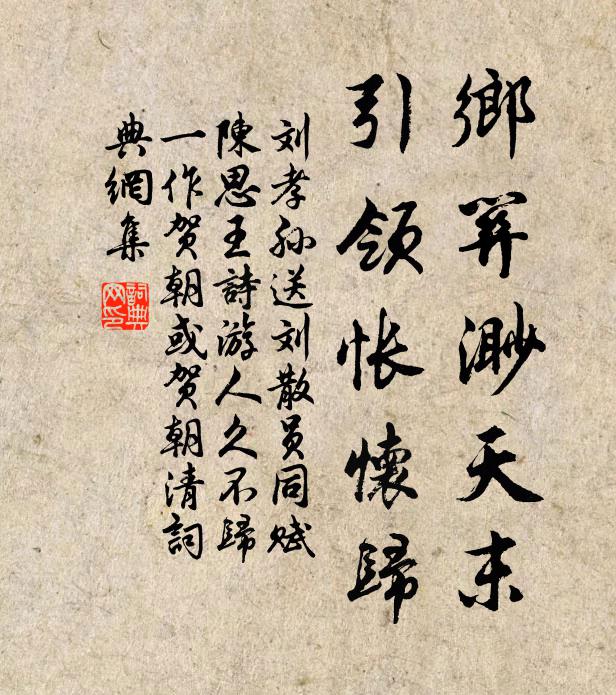 鄉關渺天末
引領悵懷歸
刘孝孙送刘散员同赋
陳思王詩游人久不歸
一作贺朝或贺朝清詞
典網集
詞典网印